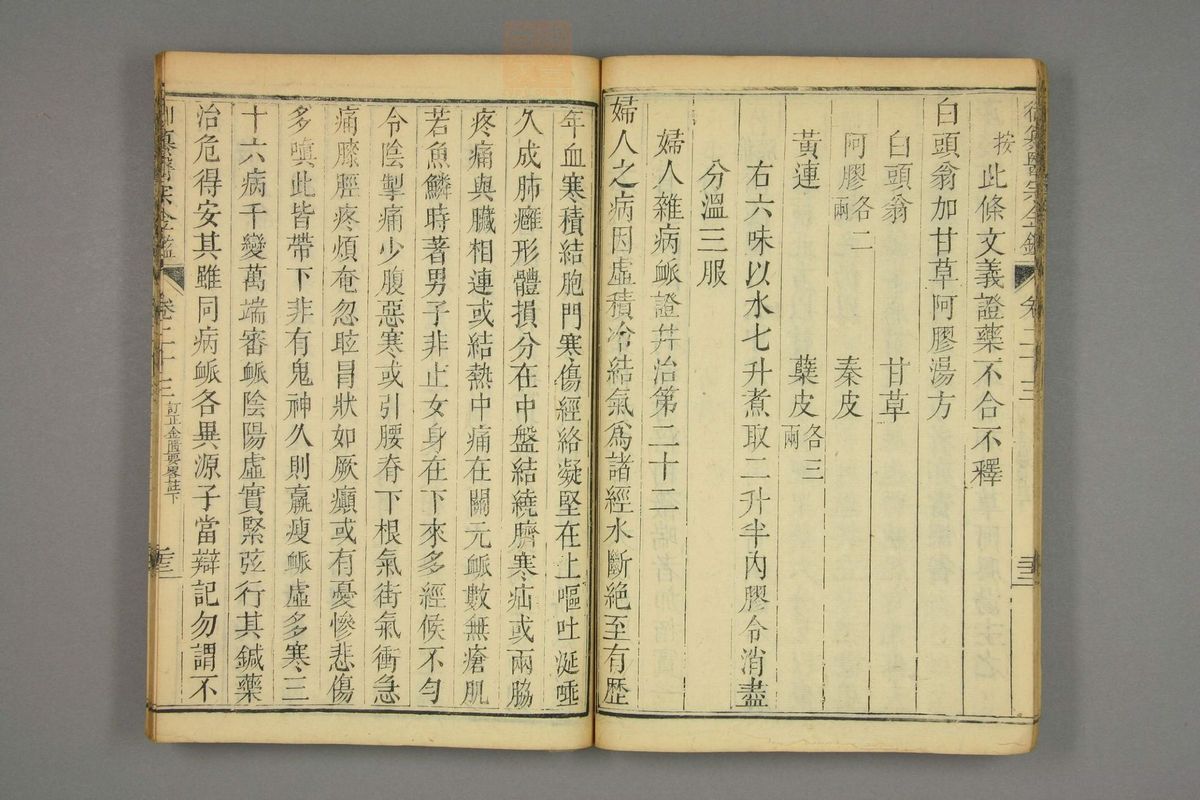 按此條文義證藥不合不釋
白頭翁加甘草阿膠湯方
白頭翁 甘草
阿膠各二兩 秦皮
黃連 蘗皮各三兩
右六味以水七升煮取二升半內膠令消盡
分溫三服
婦人雜病脈證并治第二十二
婦人之病因虛積冷結氣爲諸經水斷絕至有歷
年血寒積結胞門寒傷經絡凝堅在上嘔吐涎唾
久成肺癰形體損分在中盤結繞臍寒疝或兩脇
疼痛與臟相連或結熱中痛在關元脈數無瘡肌
若魚鱗時著男子非止女身在下來多經候不勻
令陰掣痛少腹惡寒或引腰脊下根氣街氣衝急
痛膝脛疼煩奄忽眩冒狀如厥癲或有憂慘悲傷
多嗔此皆帶下非有鬼神久則羸瘦脈虛多寒三
十六病千變萬端審脈陰陽虛實緊弦行其鍼藥
治危得安其雖同病脈各異源子當辯記勿謂不
卷二十三 訂正金匱要略註下